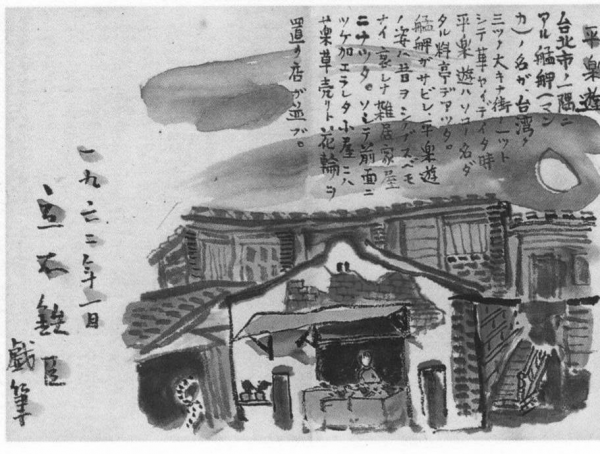 平樂遊
台北市ノ一隅ニ
アル艋舺(マン
カ)ノ名ガ、台湾ノ
三ツノ大キナ街ノ一ツト
シテ華ヤイデイタ時
平樂遊ハソコノ名ダ
タル料亭デアツタ。
艋舺ガサビレ平樂遊
ノ姿ハ昔ヲシノブスベモ
ナイ哀レナ雑居家屋
ニナツタ。ソシテ前面ニ
ツケ加エラレタ小屋ニハ
薬草売リト花輪ヲ
置ク店ガ並ブ。
一九六二年一月
立石鉄臣
戯筆